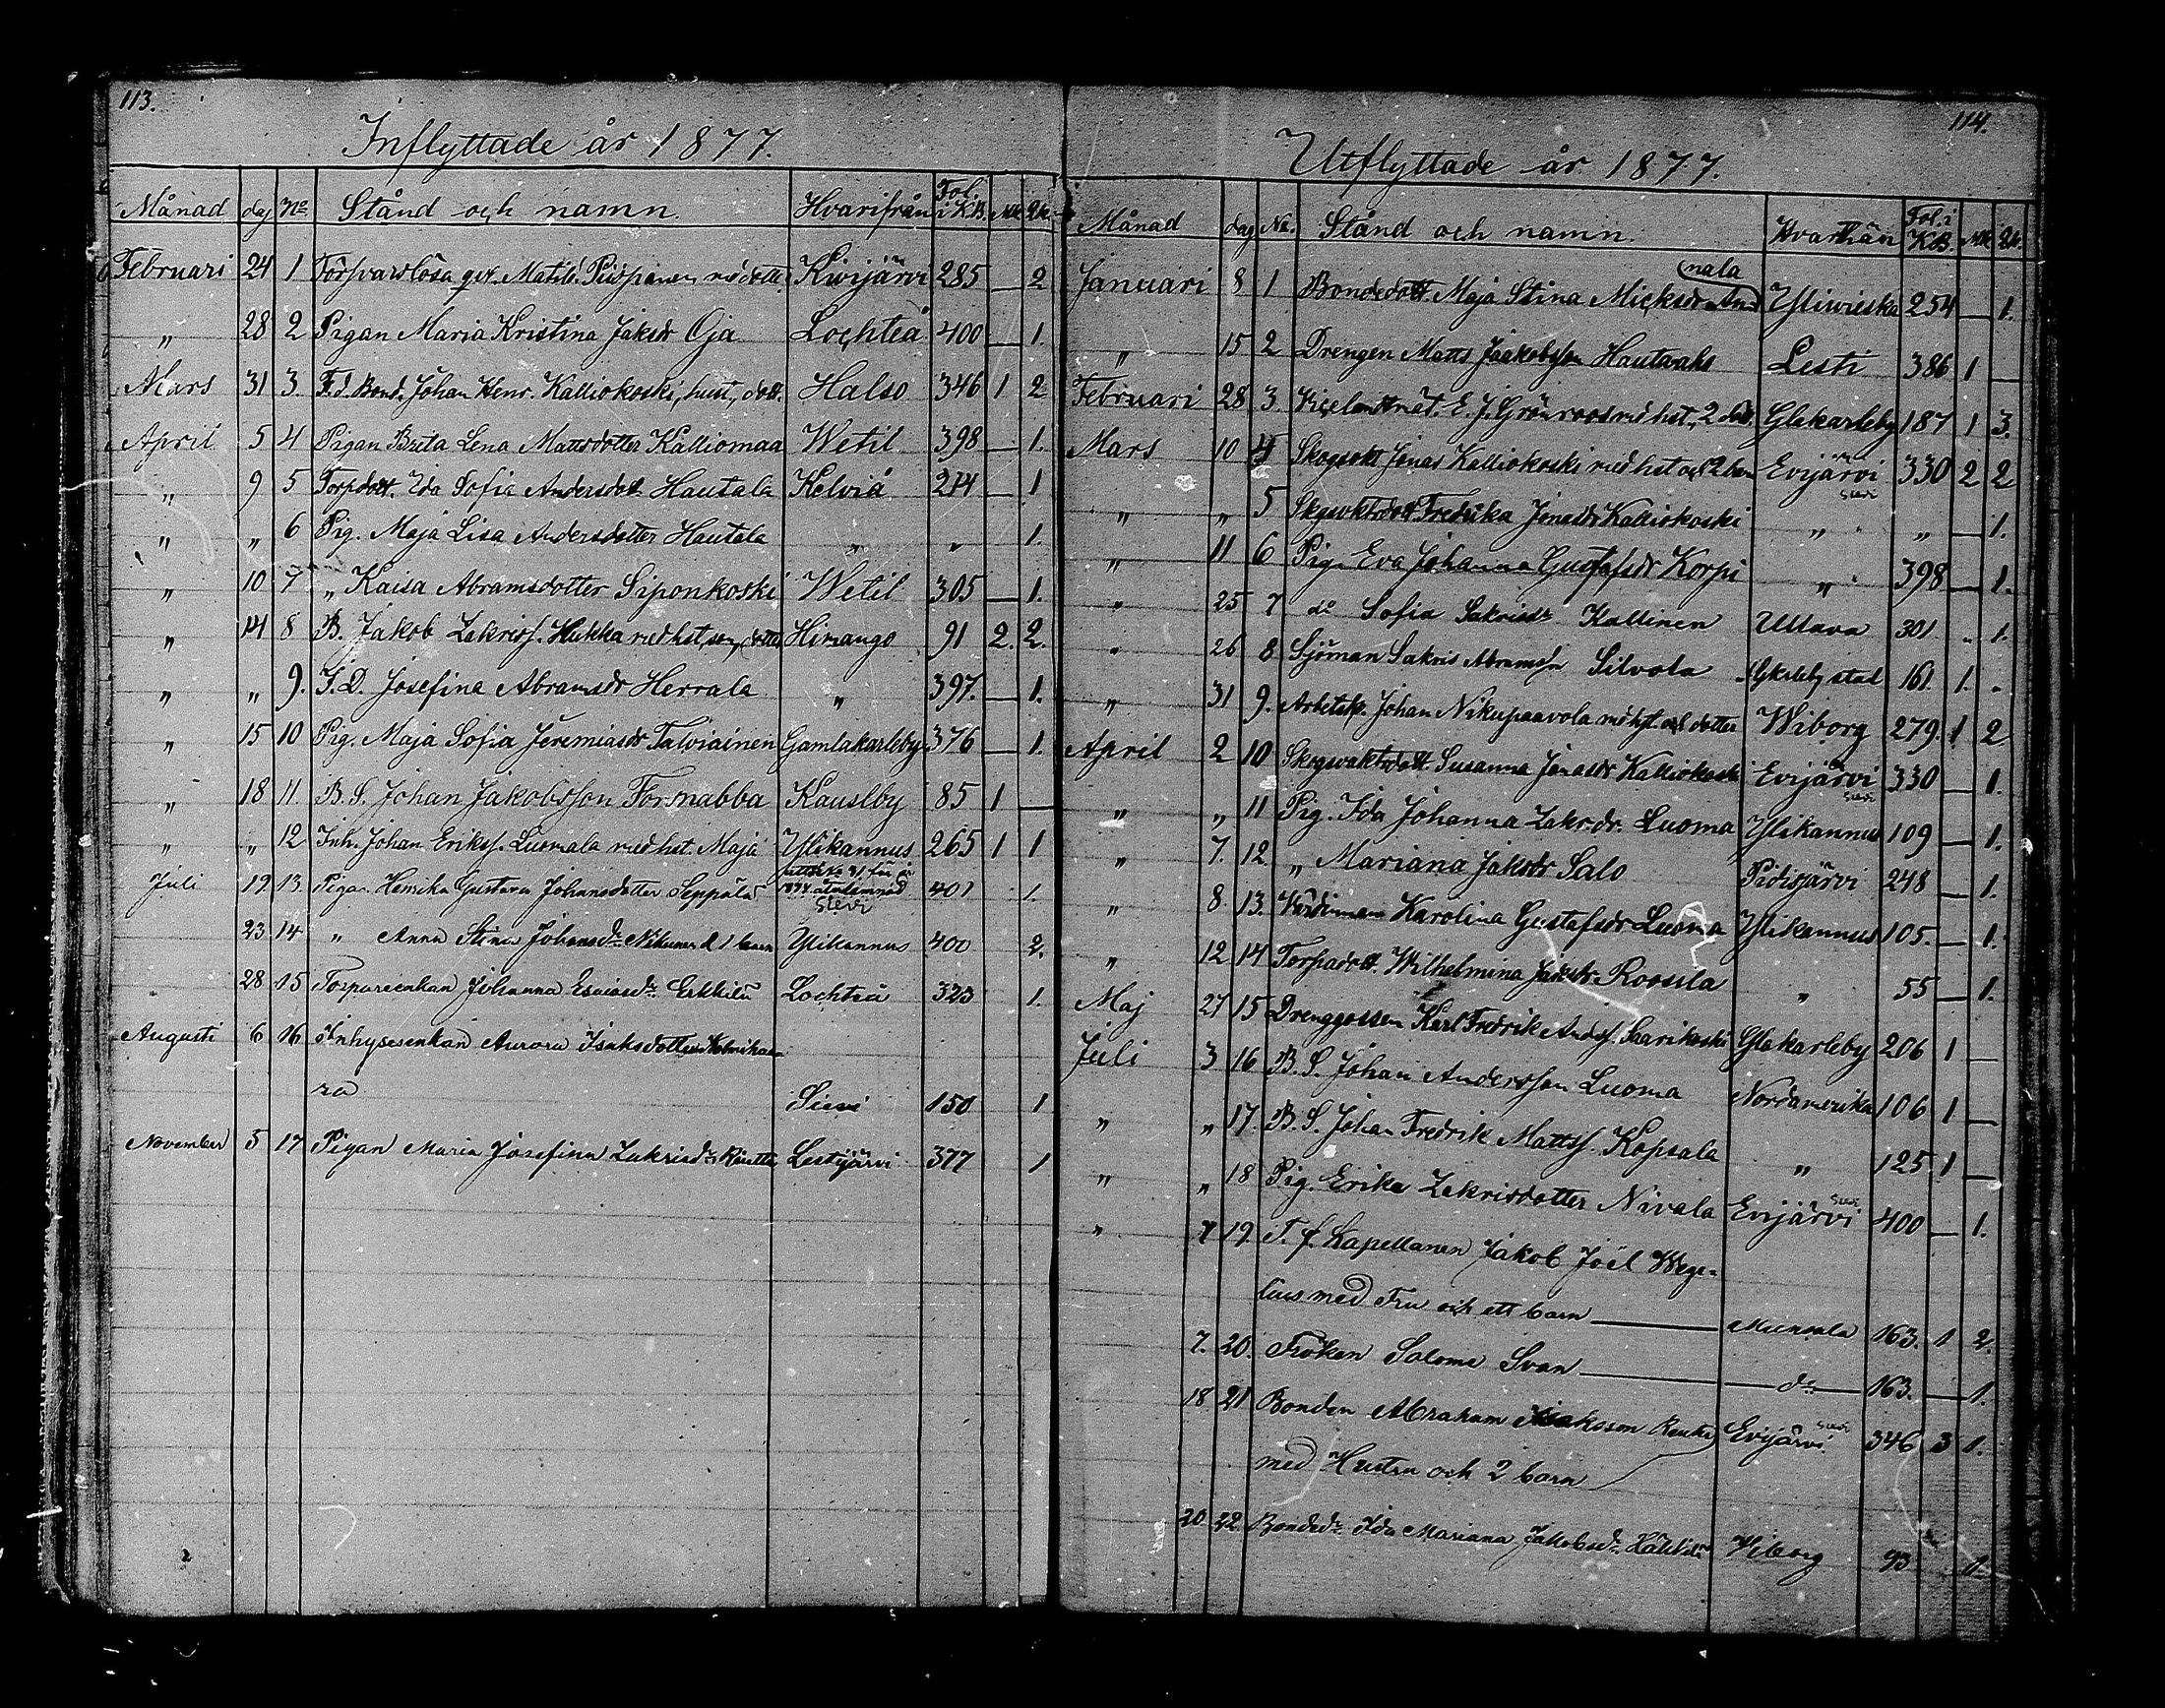 113.
Inflyttade år 1877.
Månad dag No. Stånd och namn. Hvarifrån Fol. i K.B. Mk. Qk.
Februari 24 1 Försvarslösa qv. Matild. Piispanen m dotte. Kivijärvi 285 — 2
„ 28 2 Pigan Maria Kristina Jaksdr Oja Lochteå 400 — 1.
Mars 31 3. F.d. Bond. Johan Henr. Kalliokoski, hust., dott. Halso 346 1 2
April 5 4 Pigan Brita Lena Mattsdotter Kalliomaa Wetil 398 — 1.
„ 9 5 Torpdott. Ida Sofia Andersdott Hautala Kelviå 274 — 1
„ „ 6 Pig. Maja Lisa Andersdotter Hautala „ „ 1.
„ 10 7 „ Kaisa Abramsdotter Siponkoski Wetil 305 — 1.
„ 14 8 B. Jakob Zakriss. Hukka med hst, son, dotter Himango 91 2. 2.
„ „ 9. I.D. Josefina Abramsdr Herrala „ 397. — 1.
„ 15 10 Pig. Maja Sofia Jeremiasdr Talviainen Gamlakarleby 376 — 1.
„ 18 11. B.S. Johan Jakobsson Forsnabba Kauslby 85 1 —
„ „ 12 Inh. Johan Erikss. Luomala med hst. Maja Ylikannus 265 1 1
Juli 19 13. Pigan Henrika Gustava Johansdotter Seppälä 401 1.
Sievi
23 14 „ Anna Stina Johansdr Nikunen & 1 barn Ylikannus 400 2.
28 15 Torpareenkan Johanna Esaiasdr Erkkilä Lochteå 323 1.
Augusti 6 16 Inhysesenkan Aurora Isaksdotter
ra Sievi 150 1
November 5 17 Pigan Maria Josefina Zakrisdr Rautta Lestijärvi 377 1
114.
Utflyttade år 1877.
Månad dag No. Stånd och namn. Hvarthän Fol. i K.B. Mk. Qk.
nala
Januari 8 1 Bondedott Maja Stina Micksdr And Yliwieska 254 — 1.
„ 15 2 Drengen Matts Jaakobsson Hautavahs Lesti 386 1 —
Februari 28 3. E. J. Grönroos md hst., 2 dött. Glakarleby 187 1 3.
Mars 10 4 Skogvakt Jonas Kalliokoski med hst och 2 barn Evijärvi 330 2 2
Sievi
„ „ 5 Skogvaktrdott Fredrika Jonasdr Kalliokoski „ „ — 1.
„ 11 6 Pig. Eva Johanna Gustafsdr Korpi „ 398 — 1.
„ 25 7 do Sofia Sakrisdr Kallinen Ullava 301 „ 1.
„ 26 8 Sjöman Sakris Abramssn Silvola Glkrleby stad 161. 1. „
„ 31 9. Arbetsk. Johan Nikupaavola md hst. och dotter Wiborg 279. 1 2
April 2 10 Skogvaktrdott. Susanna Jonasdr Kalliokoski Evijärvi 330 — 1.
Sievi
„ „ 11 Pig. Ida Johanna Zakrdr. Luoma Ylikannus 109 — 1.
„ 7. 12. „ Mariana Jaksdr Salo Pidisjärvi 248 — 1.
„ 8. 13. Värdinnan Karolina Gustafsdr Luoma Ylikannus 105. — 1.
„ 12 14 Torpadott. Wilhelmina Jaksdr. Roosila „ 55 — 1.
Maj 27 15 Drenggossen Karl Fredrik Andss. Saarikoski Glakarleby 206 1 —
Juli 3 16 B. S. Johan Andersson Luoma Nordamerika 106 1 —
„ „ 17. B. S. Johan Fredrik Mattss. Kopsala „ 125 1 —
„ „ 18 Pig. Erika Zakrisdotter Nivala Evijärvi 400 — 1.
Sievi
„ 7 19. T. f. Kapellanen Jakob Joel Wege-
lius med Fru och ett barn Munsala 163. 1 2.
7. 20. Fröken Salome Svan do 163. — 1.
18 21 Bonden Abraham Isaksson Rauta Evijärvi 346 3 1.
Sievi
med Hustru och 2 barn
20 22 Bondedr Ida Mariana Jakobsdr Wiborg 93 1.